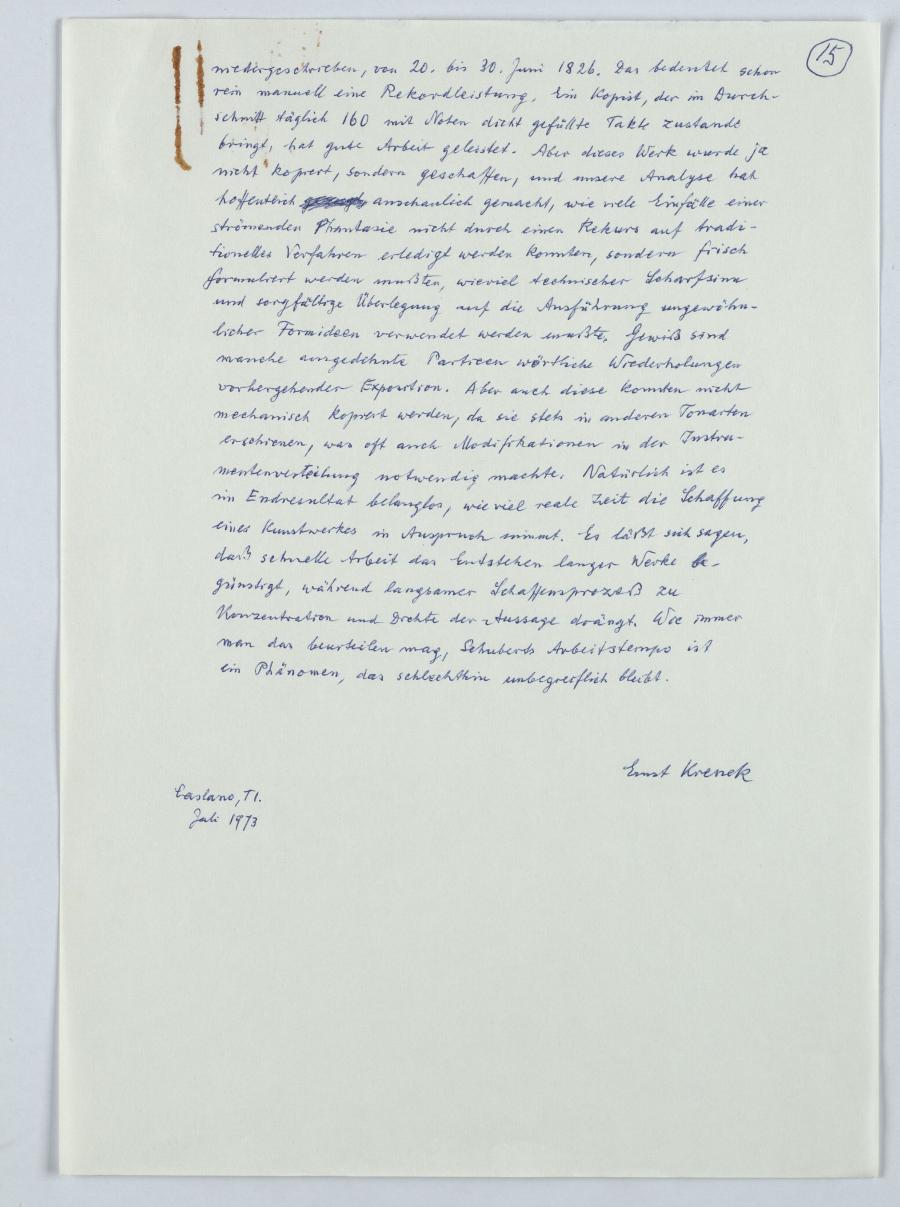 15
niedergeschrieben, von 20. bis 30. Juni 1826. Das bedeutet schon
rein manuell eine Rekordleistung. Ein Kopist, der im Durch-
schnitt täglich 160 mit Noten dicht gefüllte Takte zustande
bringt, hat gute Arbeit geleistet. Aber dieses Werk wurde ja
nicht kopiert, sondern geschaffen, und unsere Analyse hat
hoffentlich anschaulich gemacht, wie viele Einfälle einer
strömenden Phantasie nicht durch einen Rekurs auf tradi-
tionelles Verfahren erledigt werden konnten, sondern frisch
formuliert werden mußten, wieviel technischer Scharfsinn
und sorgfältige Überlegung auf die Ausführung ungewöhn-
licher Formideen verwendet werden mußte. Gewiß sind
manche ausgedehnte Partieen wörtliche Wiederholungen
vorhergehender Exposition. Aber auch diese konnten nicht
mechanisch kopiert werden, da sie stets in anderen Tonarten
erschienen, was oft auch Modifikationen in der Instru-
mentenverteilung notwendig machte. Natürlich ist es
im Endresultat belanglos, wieviel reale Zeit die Schaffung
eines Kunstwerkes in Anspruch nimmt. Es läßt sich sagen,
daß schnelle Arbeit das Entstehen langer Werke be-
günstigt, während langsamer Schaffensprozeß zu
Konzentration und Dichte der Aussage drängt. Wie immer
man das beurteilen mag, Schuberts Arbeitstempo ist
ein Phänomen, das schlechthin unbegreiflich bleibt.
Ernst Krenek
Caslano, TI.
Juli 1973